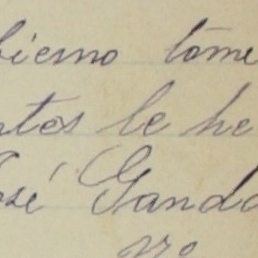 bierno tome
ntos le he
José Gando